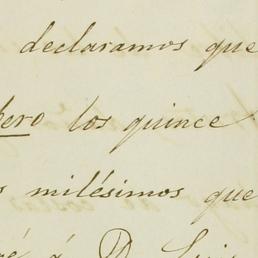 declaramos que
pero los quince
milésimos que
á D. Luis